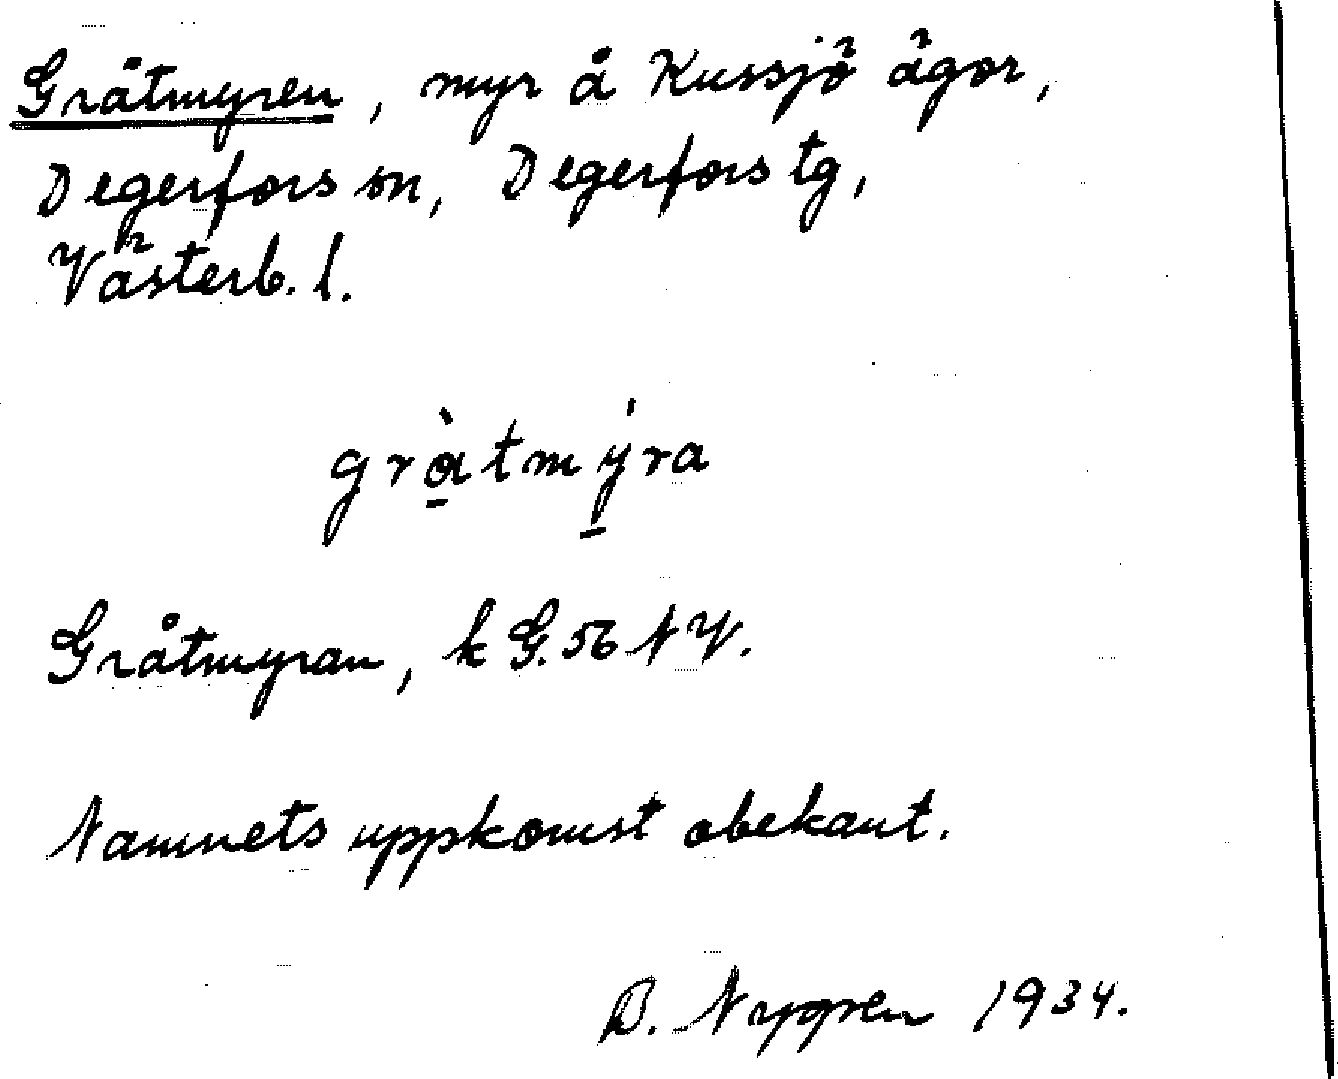 Gråtmyren, myr å Kussjö ägor,
Degerfors sn, Degerfors tg,
Västerb. l.
gràtmýra
Gråtmyran, k G. 56 NV.
Namnets uppkomst obekant.
B. Nygren 1934.